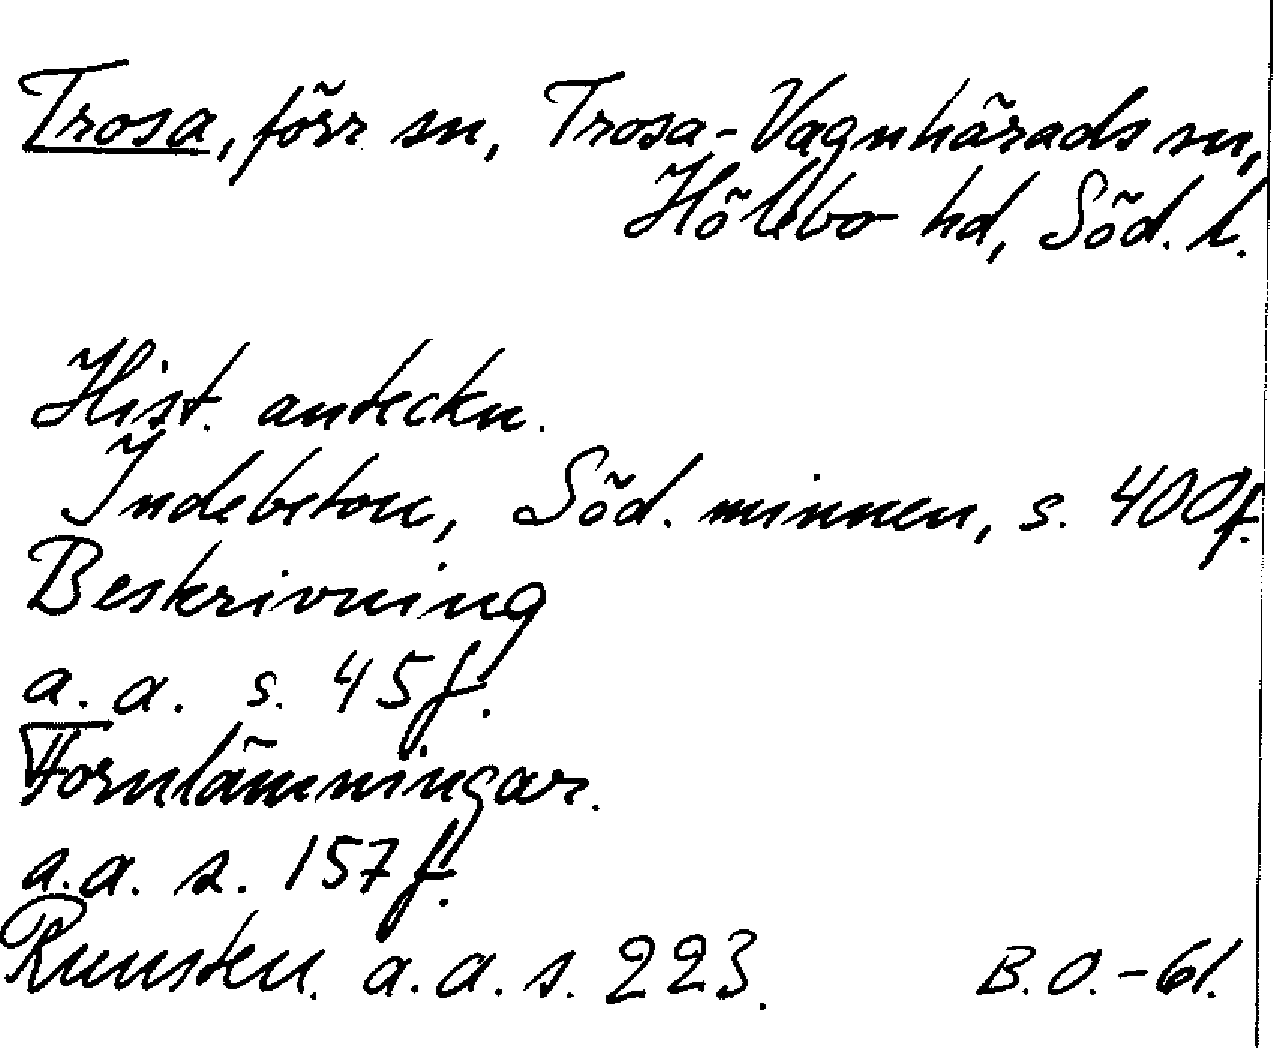 Trosa, förr sn, Trosa-Vagnhärads sn,
Hölebo hd, Söd. l.
Hist. anteckn.
Indebetou, Söd. minnen, s. 400f.
Beskrivning
a. a. s. 45f.
Fornlämningar.
a.a. s. 157f.
Runsten. a.a. s. 223.
B.O.-61.